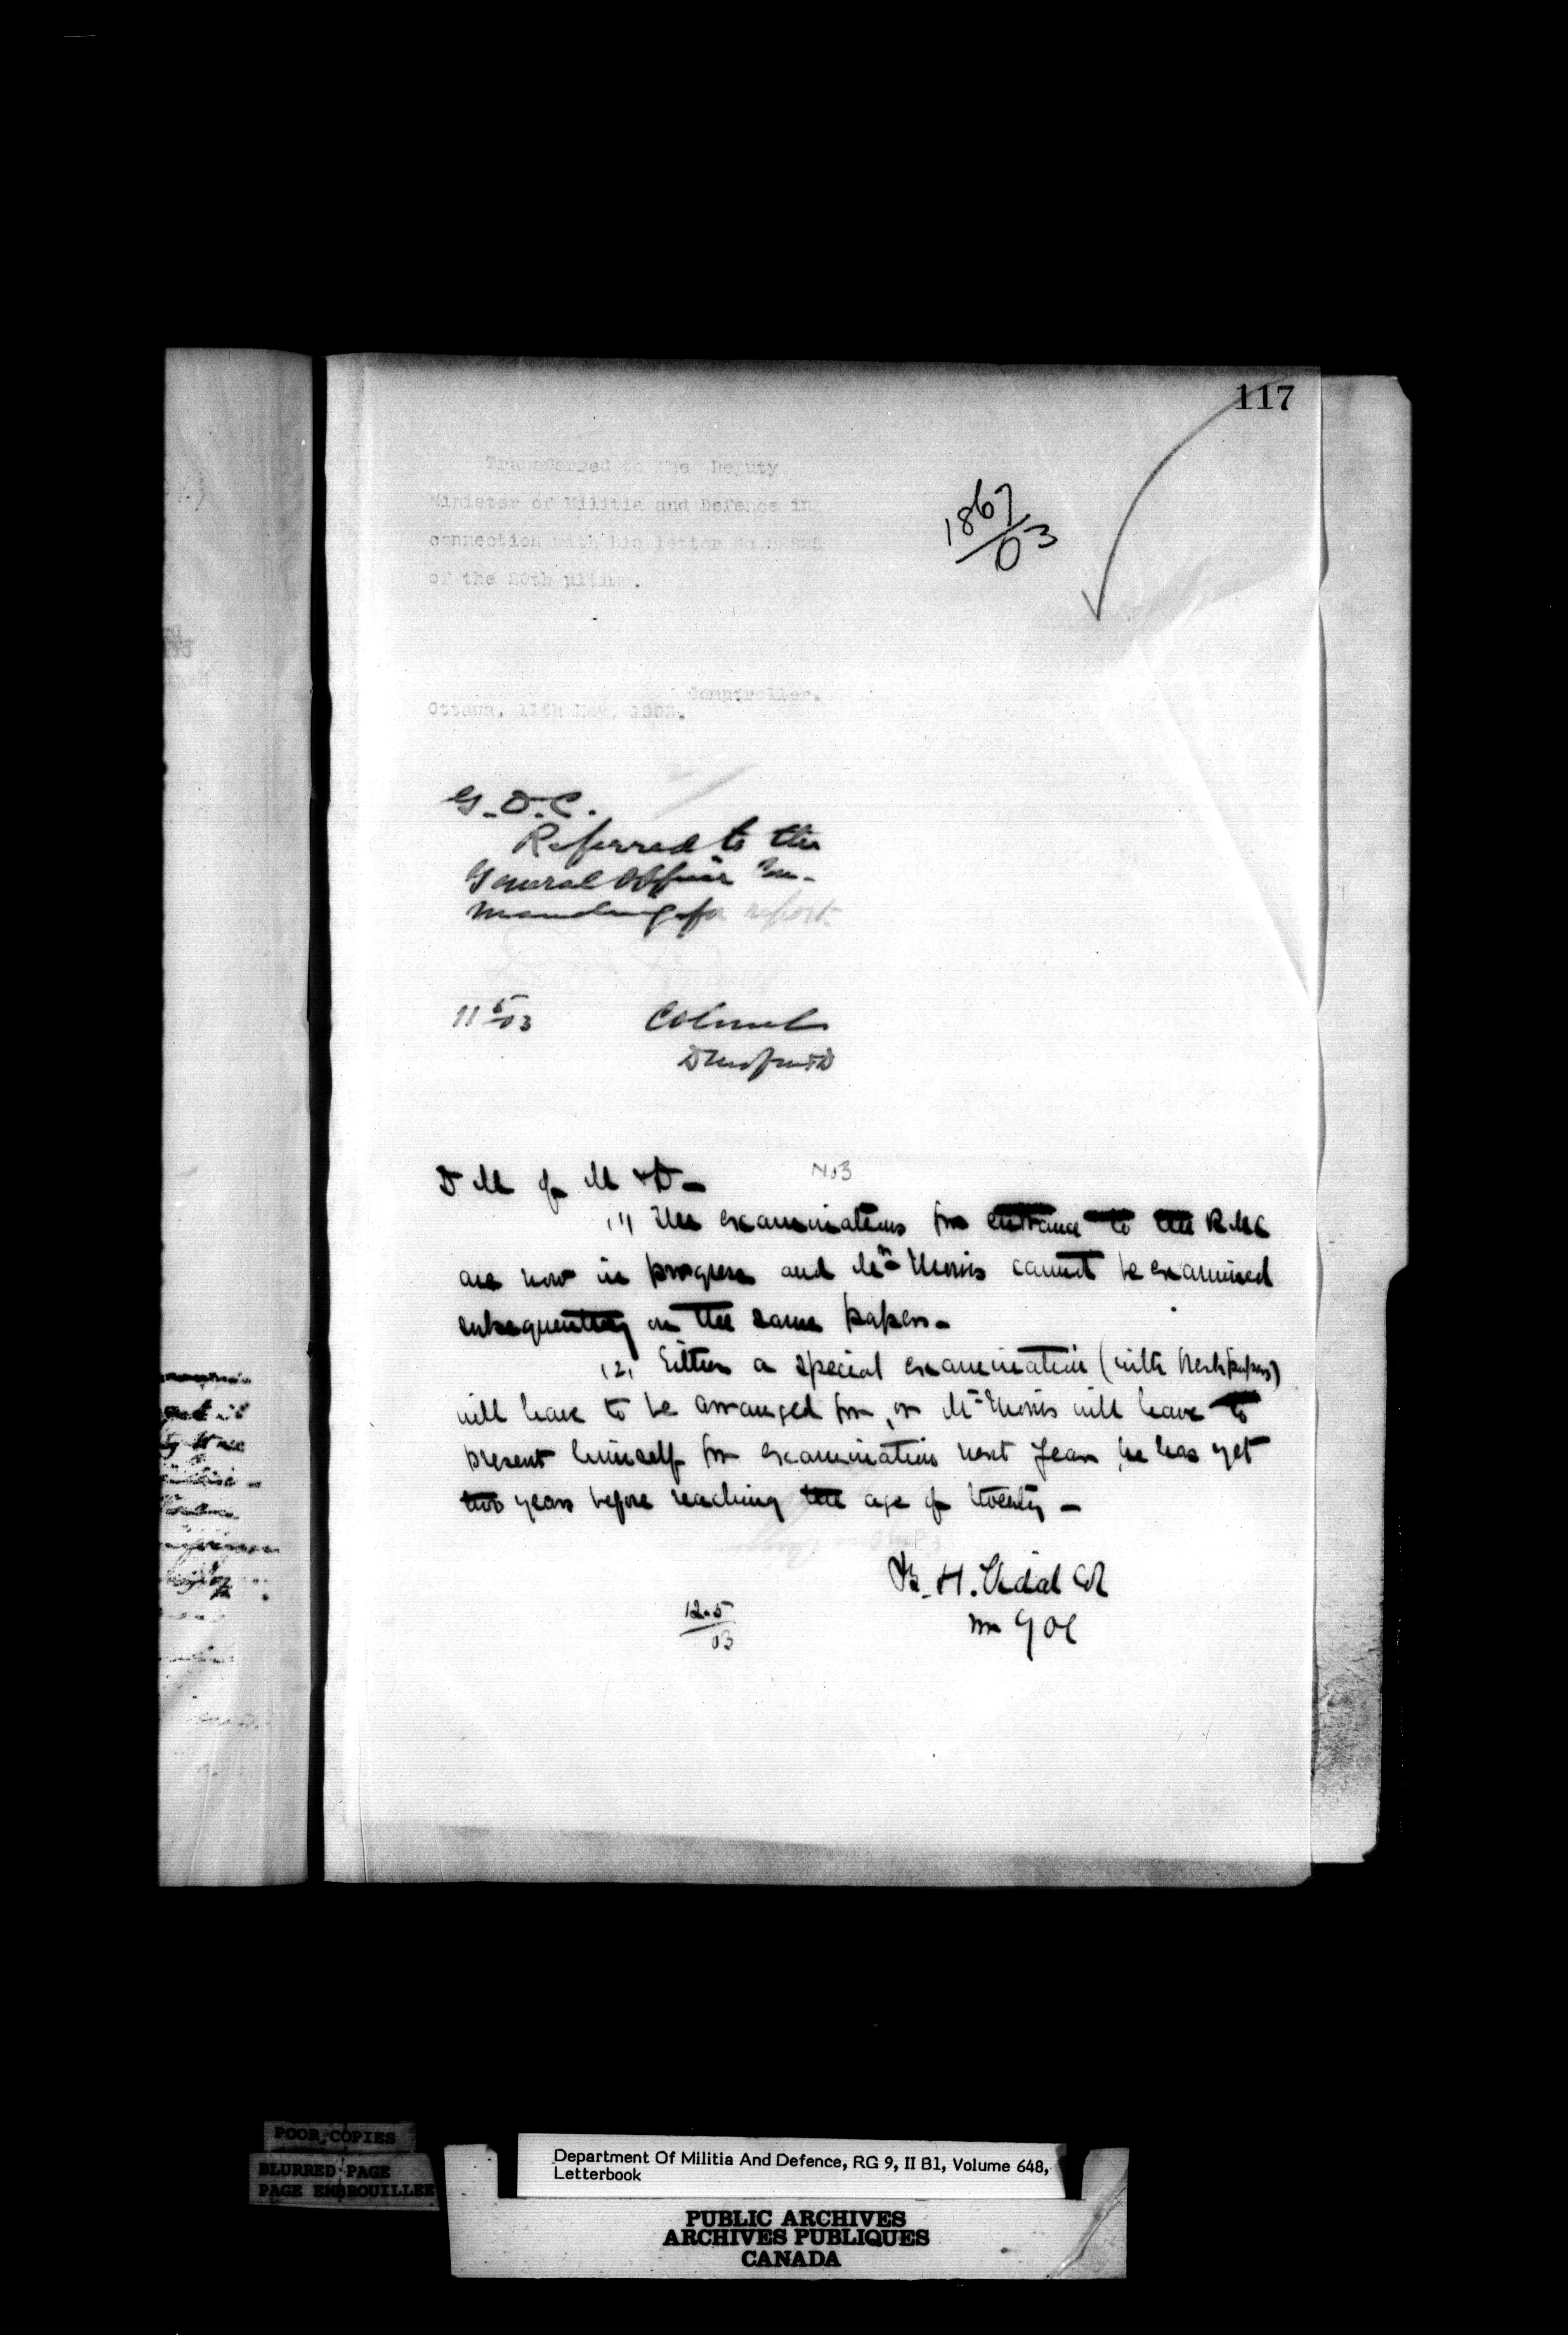 117
1867/03
Transferred to the Deputy
Minister of Militia and Defence in
connection with his letter No
of the 20th ultimo.
Comptroller.
Ottawa, 11th May, 1903.
G.O.C.
Referred to the
General Officer Com-
manding for report.
11 5/03 Colonel
DM of M & D
D M of M & D -
No 3
(1) The examinations for entrance to the RMC
are now in progress and Mr Morris cannot be examined
subsequently on the same papers -
(2) Either a special examination (with fresh papers)
will have to be arranged for, or Mr Morris will have to
present himself for examination next year, he has yet
two years before reaching the age of twenty -
B. H. Vidal Col
for GOC
12.5/03
POOR COPIES
BLURRED PAGE
PAGE EMBROUILLEE
Department Of Militia And Defence, RG 9, II B1, Volume 648,
Letterbook
PUBLIC ARCHIVES
ARCHIVES PUBLIQUES
CANADA